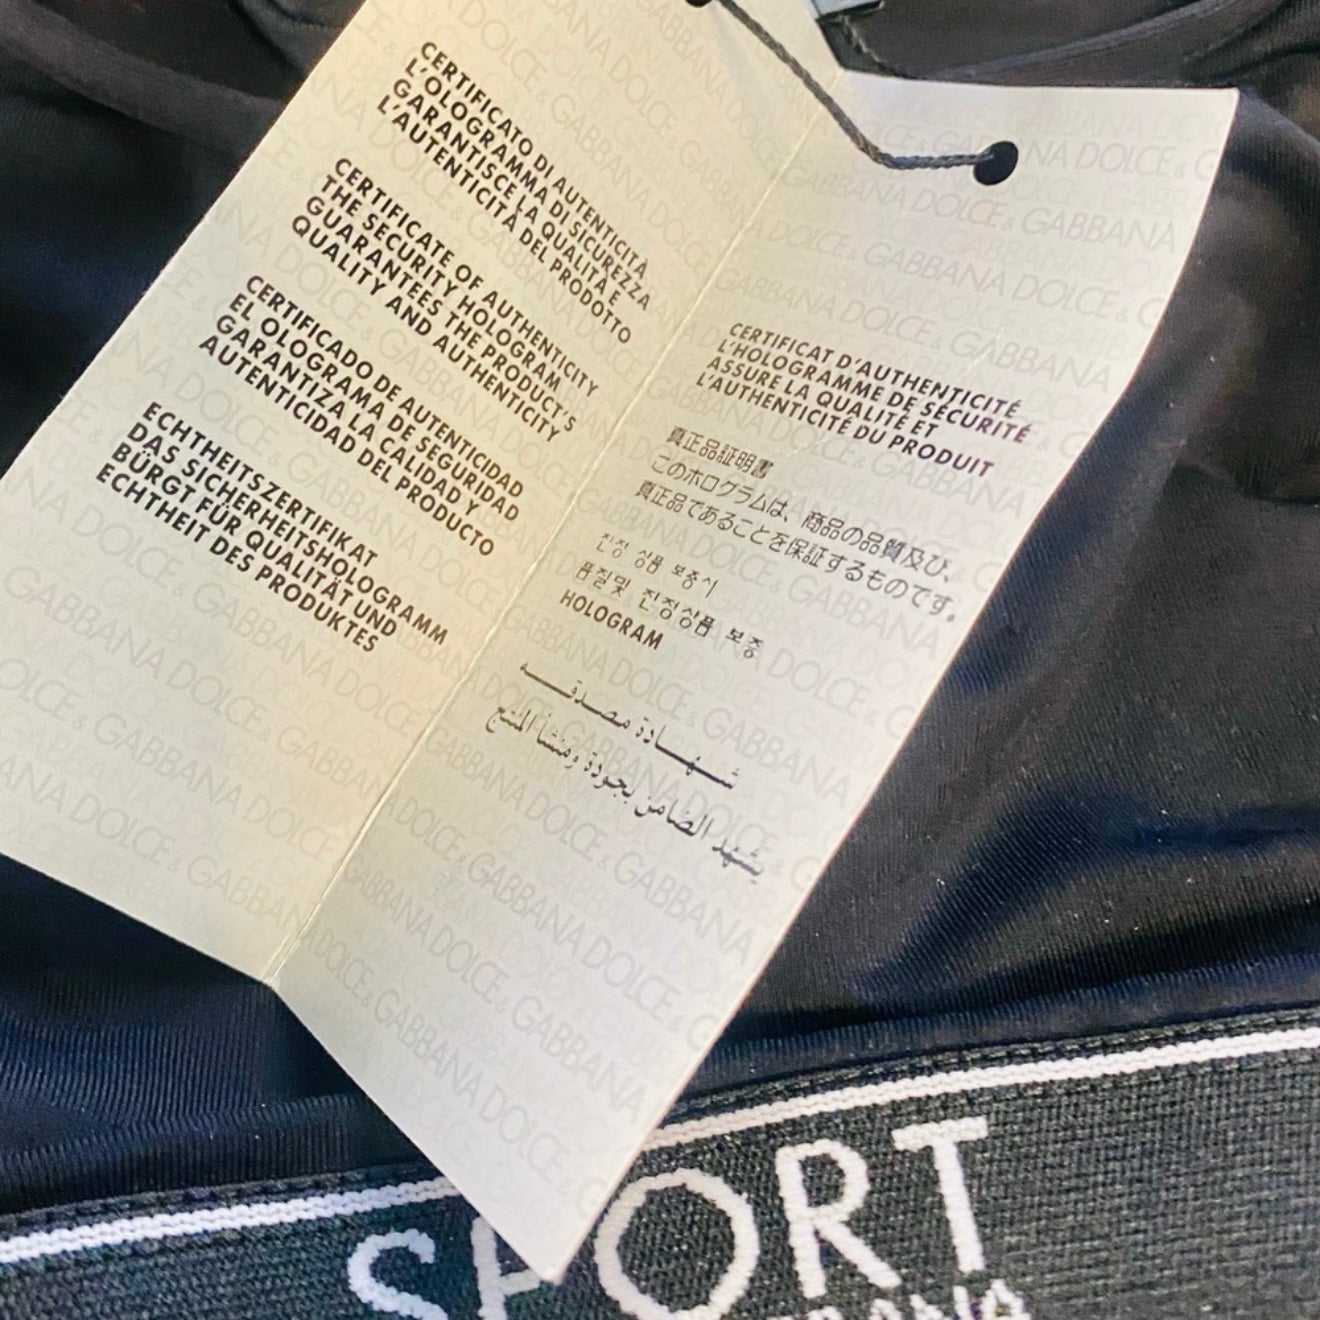 CERTIFICATO DI AUTENTICITÀ
L'OLOGRAMMA DI SICUREZZA
GARANTISCE LA QUALITÀ E
L'AUTENTICITÀ DEL PRODOTTO
CERTIFICATE OF AUTHENTICITY
THE SECURITY HOLOGRAM
GUARANTEES THE PRODUCT'S
QUALITY AND AUTHENTICITY
CERTIFICADO DE AUTENTICIDAD
EL OLOGRAMA DE SEGURIDAD
GARANTIZA LA CALIDAD Y
AUTENTICIDAD DEL PRODUCTO
ECHTHEITSZERTIFIKAT
DAS SICHERHEITSHOLOGRAMM
BÜRGT FÜR QUALITÄT UND
ECHTHEIT DES PRODUKTES
CERTIFICAT D'AUTHENTICITÉ
L'HOLOGRAMME DE SÉCURITÉ
ASSURE LA QUALITÉ ET
L'AUTHENTICITÉ DU PRODUIT
真正品証明書
このホログラムは、商品の品質及び、
真正品であることを保証するものです。
진정 상품 보증시
품질및 진정상품 보증
HOLOGRAM
شهادة مصدقه
يشهد الضامن بجودة ومنشأ المنتج
DOLCE & GABBANA
SPORT